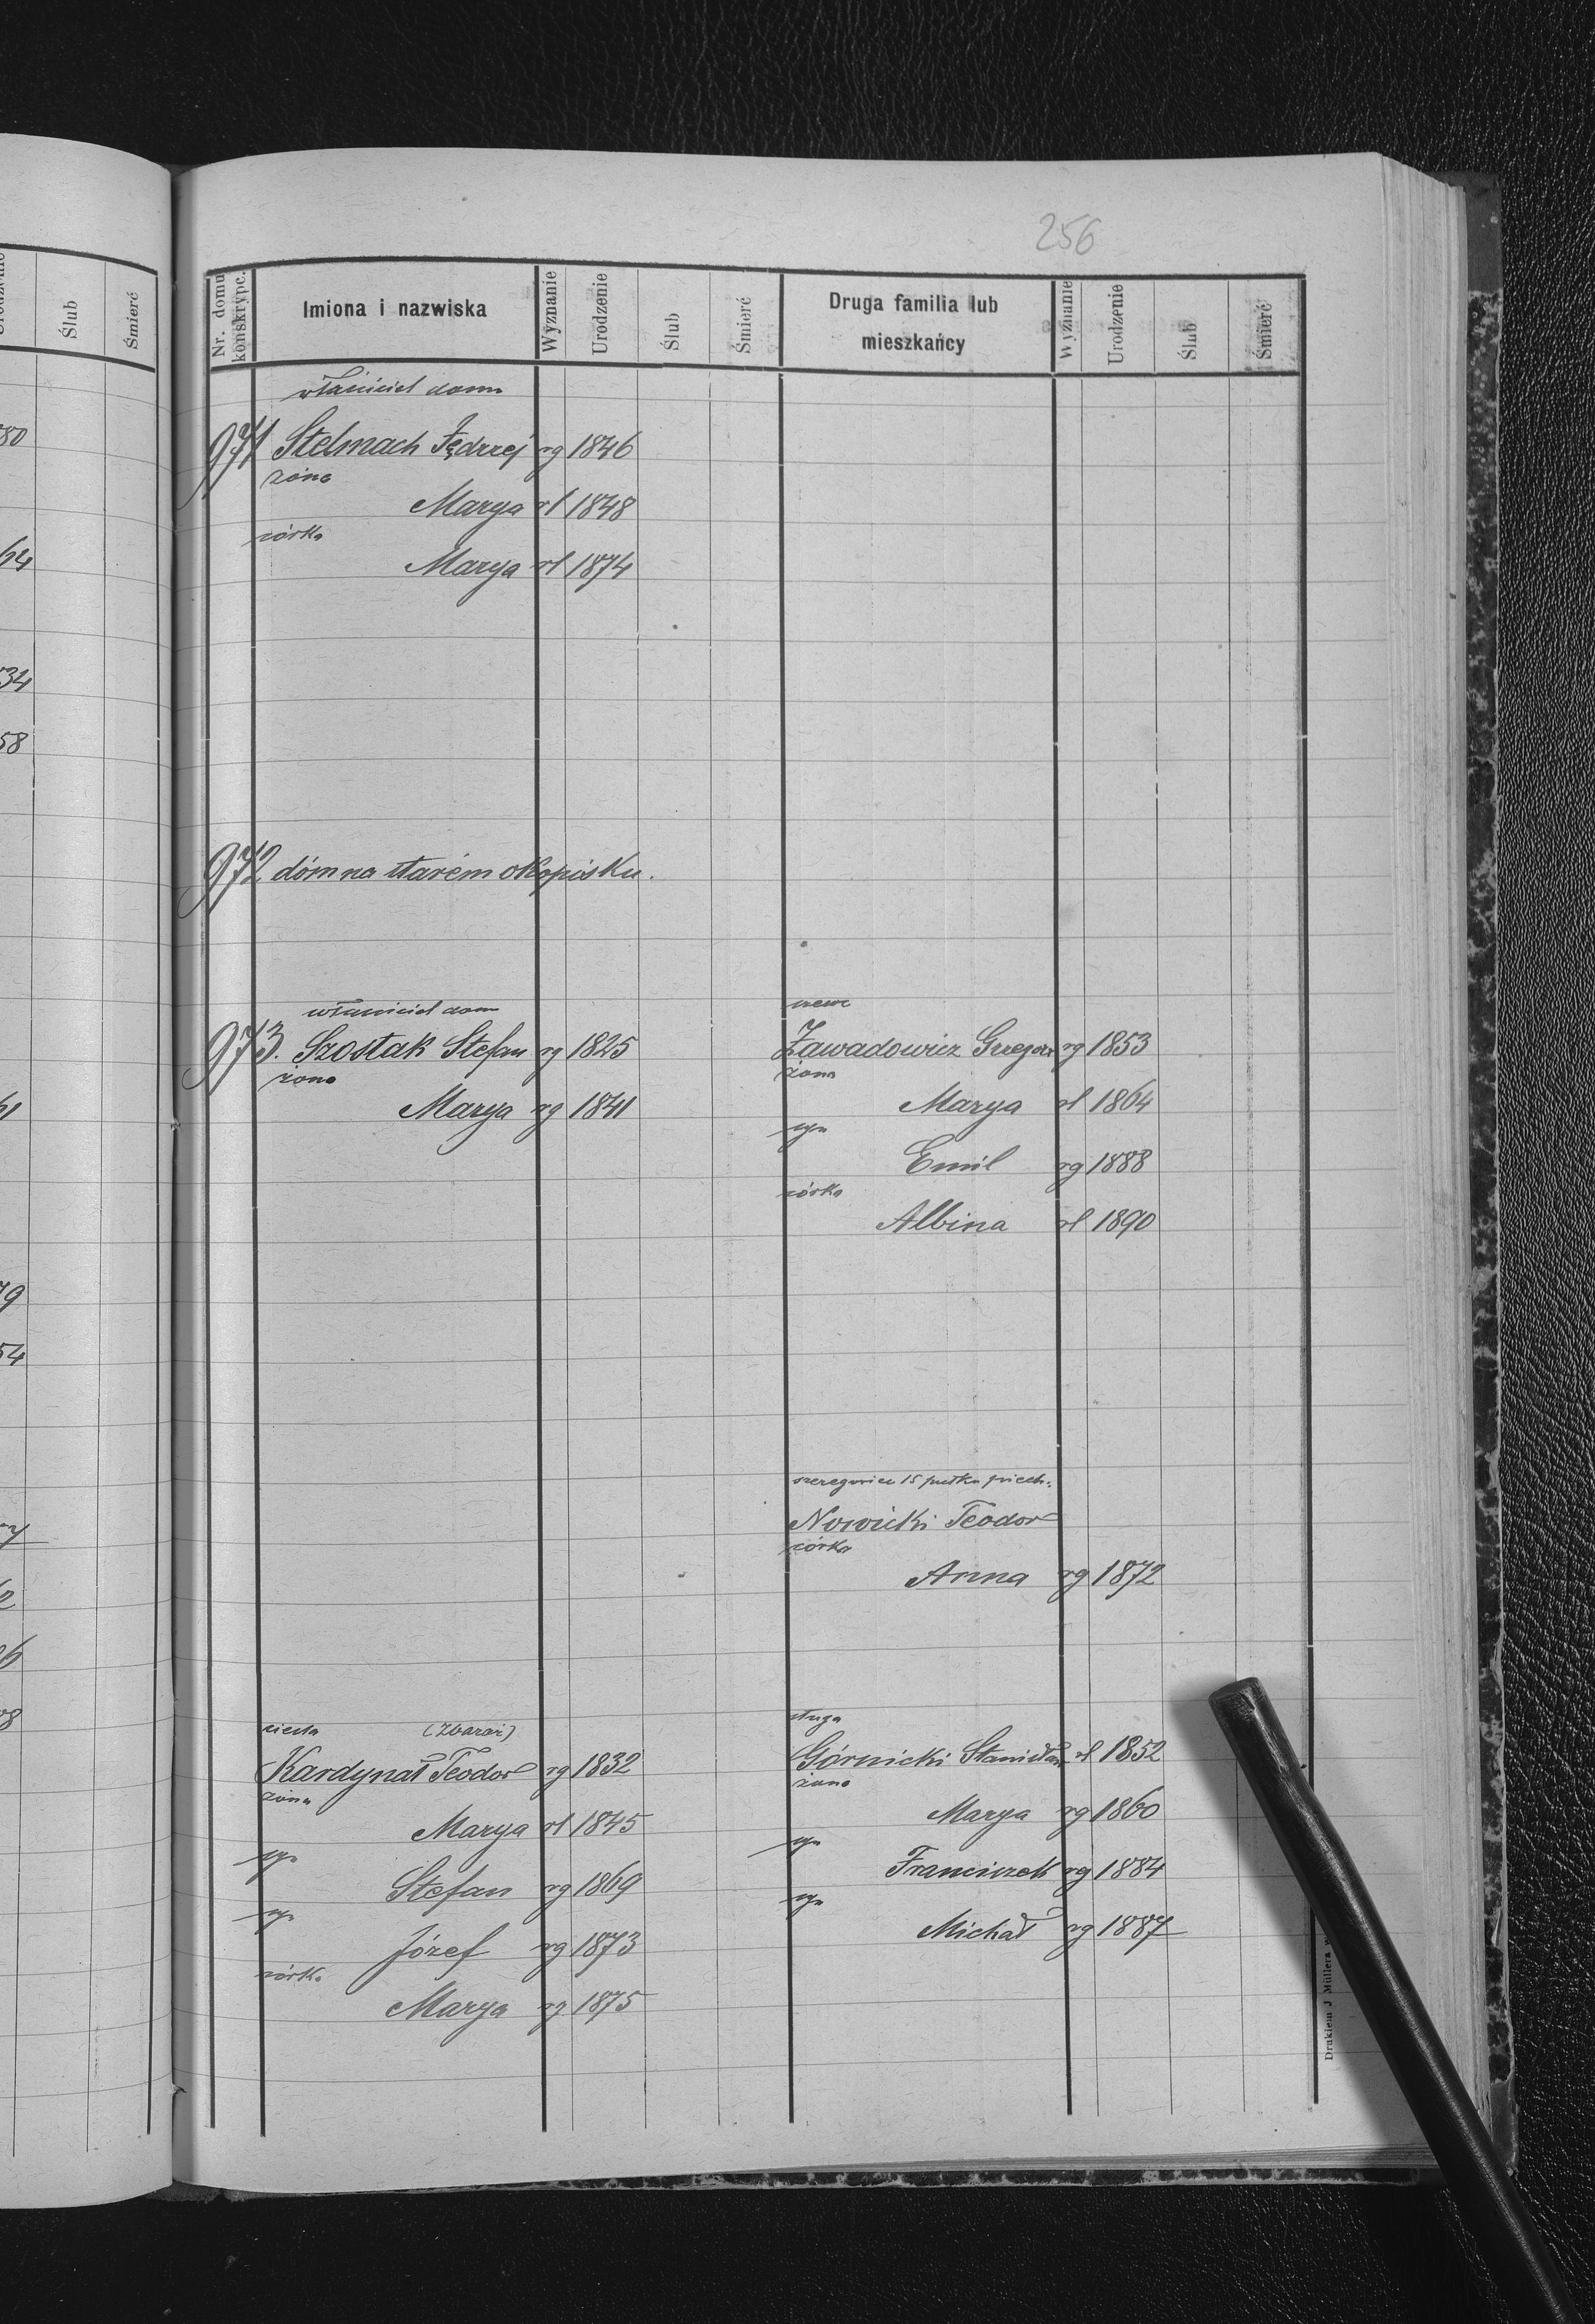 256
Nr. domu konskrypc. Imiona i nazwiska Wyznanie Urodzenie Ślub Śmierć Druga familia lub mieszkańcy Wyznanie Urodzenie Ślub Śmierć
Ślub Śmierć
właściciel domu
971 Stelmach Jędrzej rg 1846
żona
Marya rł 1848
córka
Marya rł 1874
972 dóm na starém okopisku.
właściciel dom
973. Szostak Stefan rg 1825
żona
Marya rg 1841
szewc
Zawadowicz Grzegorz rg 1853
żona
Marya rł 1864
syn
Emil rg 1888
córka
Albina rł 1890
szeregowiec 15 pułku piech.
Nowicki Teodor
córka
Anna rg 1872
cieśla (Zbaraż)
Kardynał Teodor rg 1832
żona
Marya rł 1845
syn
Stefan rg 1869
syn
Józef rg 1873
córka
Marya rg 1875
sługa
Górnicki Stanisław rł 1852
żona
Marya rg 1860
syn
Franciszek rg 1884
syn
Michał rg 1887
Drukiem J Müllera w
80
64
34
58
61
79
54